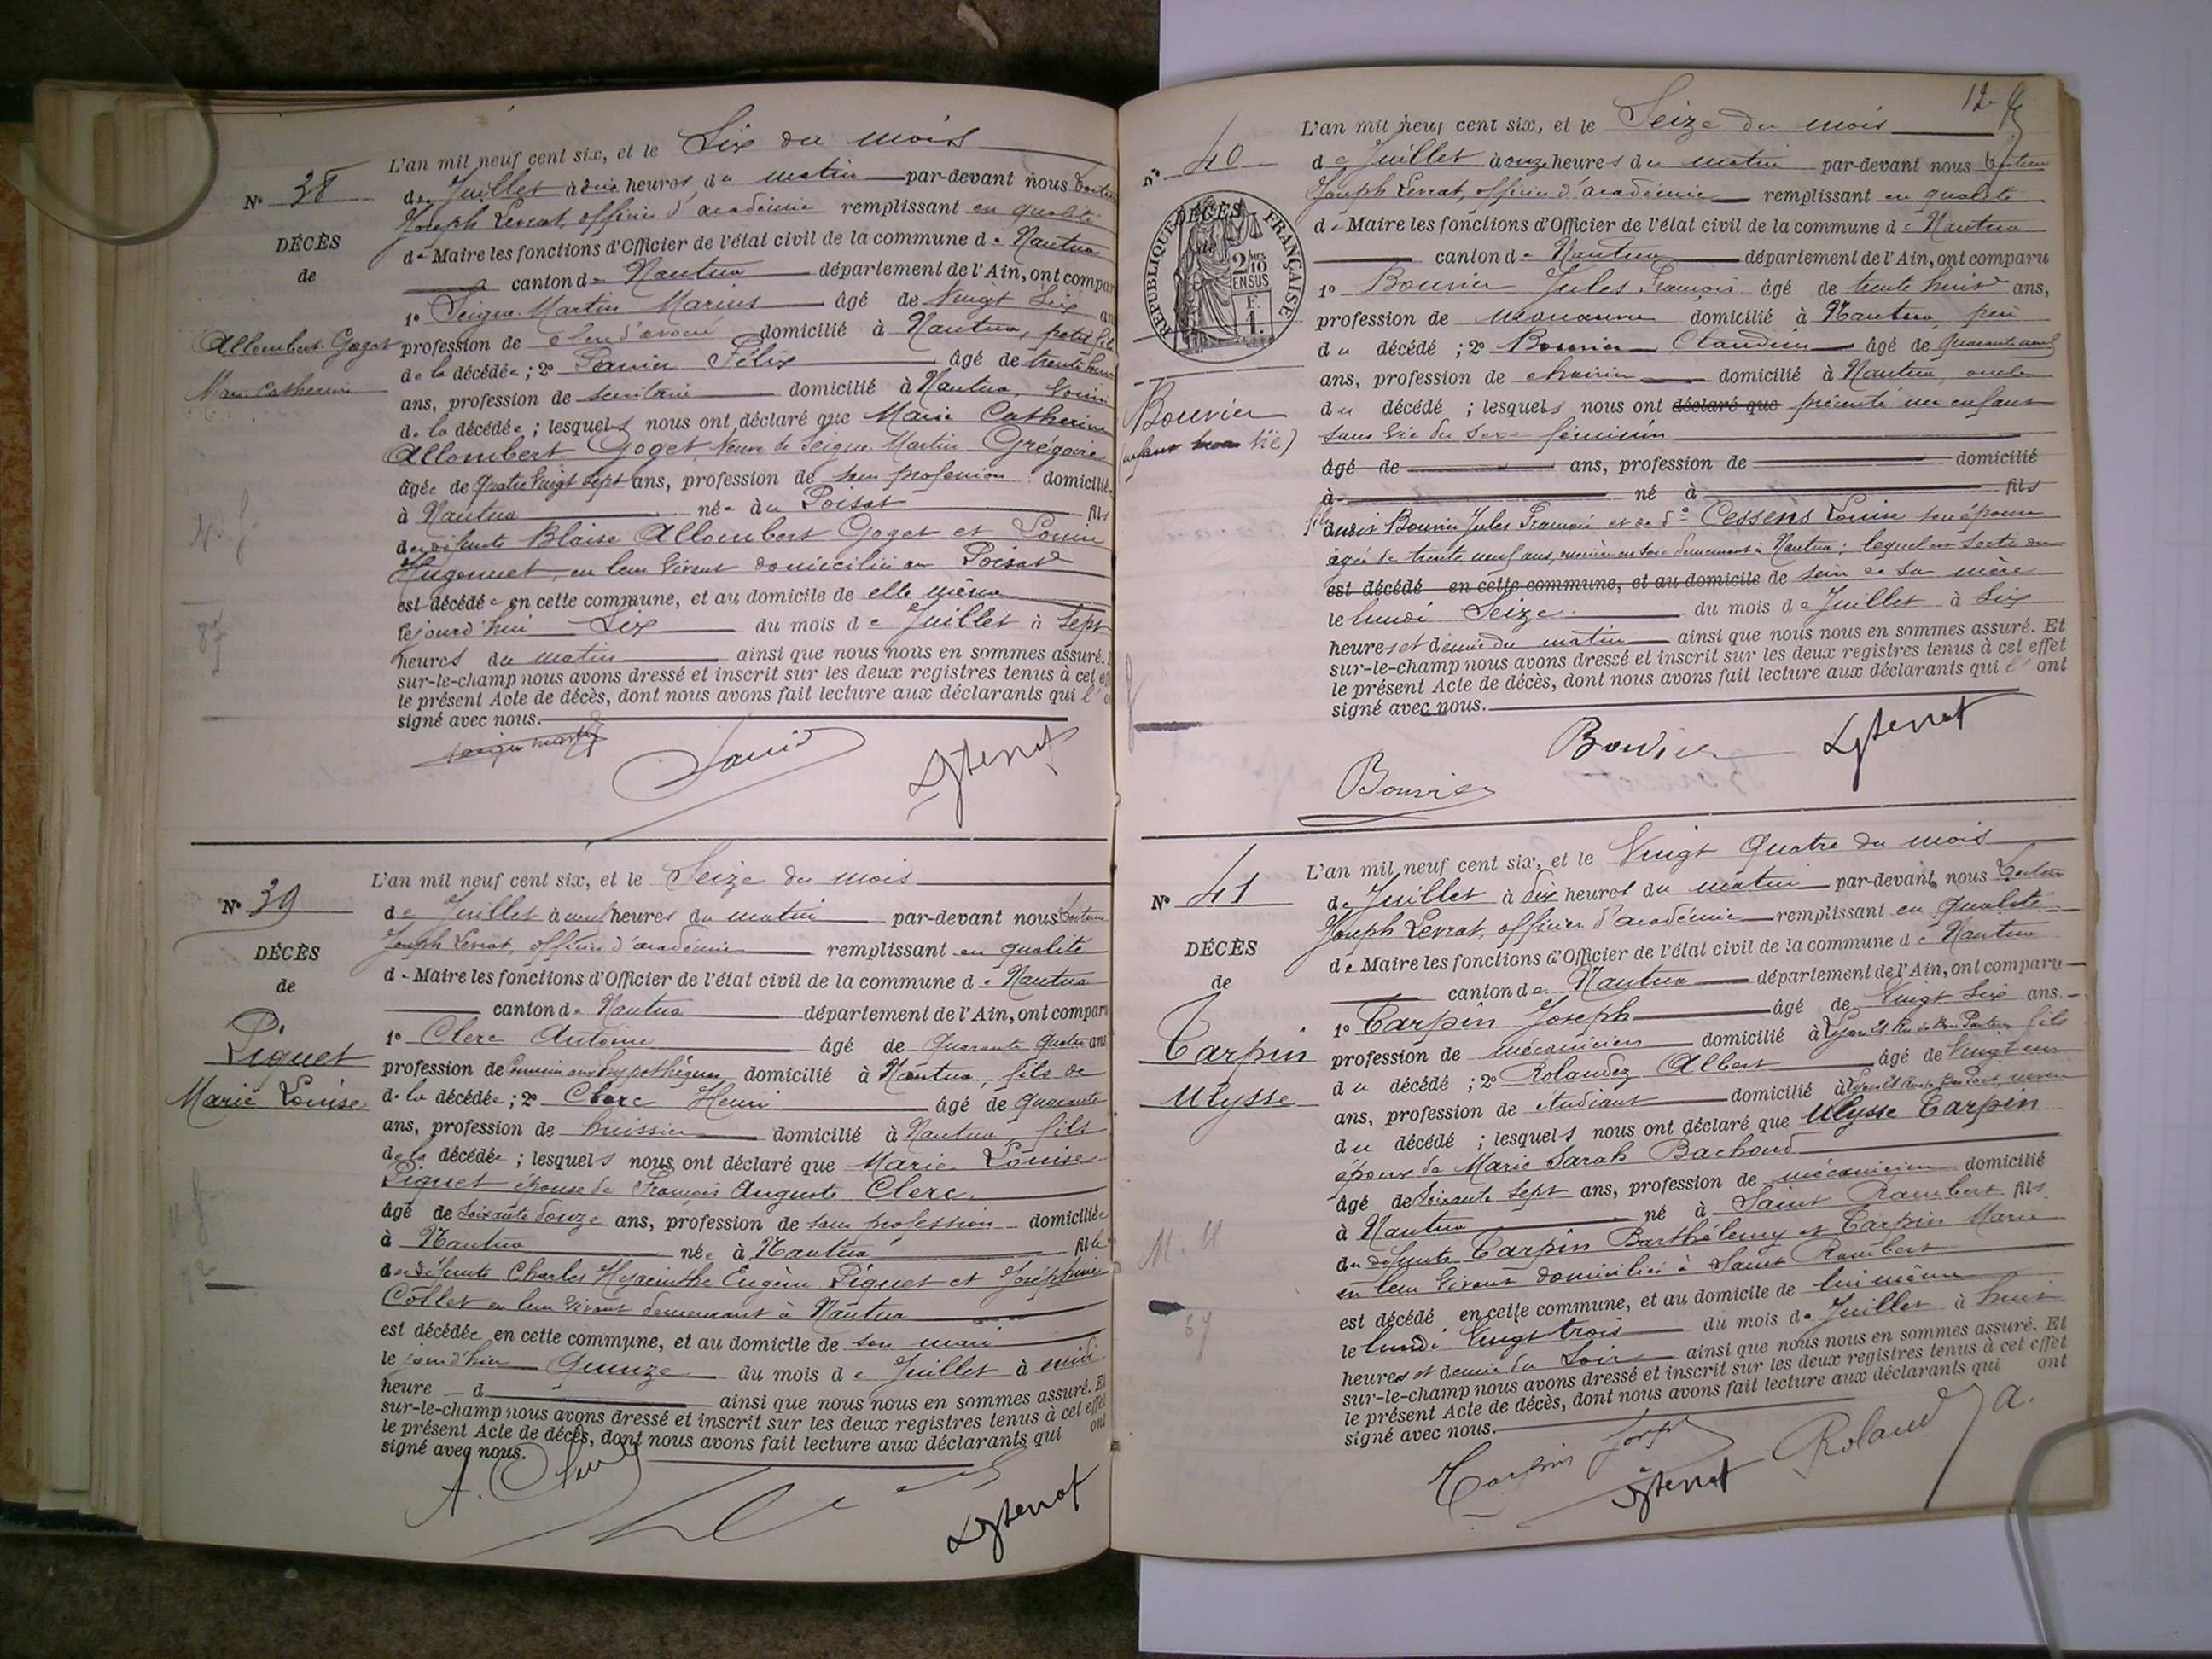 L'an mil neuf cent six, et le Six du mois
N° 38
de Juillet à dix heures du matin par-devant nous Docteur
Joseph Levrat, officier d'académie remplissant en qualité
DÉCÈS
de Maire les fonctions d'Officier de l'état civil de la commune de Nantua
de
canton de Nantua département de l'Ain, ont compar
1° Seigne-Martin Marius âgé de Vingt Six an
Allombert-Goget
profession de clerc d'avoué domicilié à Nantua, petit fils
Marie Catherine
de la décédée ; 2° Janin Félix âgé de trente
ans, profession de domicilié à Nantua, Voisin
de la décédée ; lesquels nous ont déclaré que Marie Catherine
Allombert Goget, Veuve de Seigne-Martin Grégoire
âgée de Quatre Vingt Sept ans, profession de sans profession domicilié
à Nantua née au Poisat fils
des défunts Blaise Allombert Goget et Louise
Hugonnet, en leur vivant domiciliés au Poisat
est décédée en cette commune, et au domicile de elle même
le jourd'hui Six du mois de Juillet à Sept
heures du matin ainsi que nous nous en sommes assuré.
sur-le-champ nous avons dressé et inscrit sur les deux registres tenus à cet
87
le présent Acte de décès, dont nous avons fait lecture aux déclarants qui l'
signé avec nous.
L'an mil neuf cent six, et le Seize du mois
N° 39
de Juillet à neuf heures du matin par-devant nous Docteur
Joseph Levrat, officier d'académie remplissant en qualité
DÉCÈS
de Maire les fonctions d'Officier de l'état civil de la commune de Nantua
de
canton de Nantua département de l'Ain, ont compar
Piguet
1° Clerc Antoine âgé de Quarante Quatre ans
profession de Commis aux hypothèques domicilié à Nantua, fils de
Marie Louise
de la décédée ; 2° Clerc Henri âgé de Quarante
ans, profession de huissier domicilié à Nantua fils
de la décédée ; lesquels nous ont déclaré que Marie Louise
Piguet épouse de François Auguste Clerc
âgé de Soixante douze ans, profession de sans profession domiciliée
à Nantua née à Nantua fille
des défunts Charles Hyacinthe Eugène Piguet et Joséphine
Collet en leur vivant demeurant à Nantua
est décédée en cette commune, et au domicile de son mari
le jourd'hui Quinze du mois de Juillet à midi
heure d ainsi que nous nous en sommes assuré. Et
sur-le-champ nous avons dressé et inscrit sur les deux registres tenus à cet effet
le présent Acte de décès, dont nous avons fait lecture aux déclarants qui ont
signé avec nous.
12
L'an mil neuf cent six, et le Seize du mois
N° 40
de Juillet à onze heures du matin par-devant nous Docteur
Joseph Levrat, officier d'académie remplissant en qualité
DÉCÈS
de
RÉPUBLIQUE FRANÇAISE
2/10 EN SUS
F. 1.
de Maire les fonctions d'Officier de l'état civil de la commune de Nantua
canton de Nantua département de l'Ain, ont comparu
1° Bouvier Jules François âgé de trente huit ans,
profession de domicilié à Nantua, père
du décédé ; 2° Bouvier Claudius âgé de Quarante neuf
ans, profession de domicilié à Nantua, oncle
Bouvier
du décédé ; lesquels nous ont déclaré que présenté un enfant
(enfant sans vie)
sans vie du sexe féminin
âgé de ans, profession de domicilié
à né à fils
fille dudit Bouvier Jules François et de De Cessens Louise son épouse
âgée de trente neuf ans, avec lui demeurant à Nantua ; lequel est sorti du
est décédé en cette commune, et au domicile de sein de sa mère
le lundi Seize du mois de Juillet à Six
heures et demie du matin ainsi que nous nous en sommes assuré. Et
sur-le-champ nous avons dressé et inscrit sur les deux registres tenus à cet effet
le présent Acte de décès, dont nous avons fait lecture aux déclarants qui l' ont
signé avec nous.
Bouvier
Bouvier
L'an mil neuf cent six, et le Vingt Quatre du mois
N° 41
de Juillet à dix heures du matin par-devant nous Docteur
Joseph Levrat, officier d'académie remplissant en qualité
DÉCÈS
de Maire les fonctions d'Officier de l'état civil de la commune de Nantua
de
canton de Nantua département de l'Ain, ont comparu
Tarpin
1° Tarpin Joseph âgé de Vingt Six ans.
profession de mécanicien domicilié à Lyon fils
Ulysse
du décédé ; 2° Rolandez Albert âgé de Vingt un
ans, profession de étudiant domicilié à Lyon neveu
du décédé ; lesquels nous ont déclaré que Ulysse Tarpin
époux de Marie Sarah Bachoud
âgé de Soixante Sept ans, profession de mécanicien domicilié
à Nantua né à Saint Rambert fils
des défunts Tarpin Barthélemy et Tarpin Marie
en leur vivant domiciliés à Saint Rambert
est décédé en cette commune, et au domicile de lui même
le lundi Vingt trois du mois de Juillet à huit
67
heures et demie du Soir ainsi que nous nous en sommes assuré. Et
sur-le-champ nous avons dressé et inscrit sur les deux registres tenus à cet effet
le présent Acte de décès, dont nous avons fait lecture aux déclarants qui ont
signé avec nous.
Tarpin Joseph